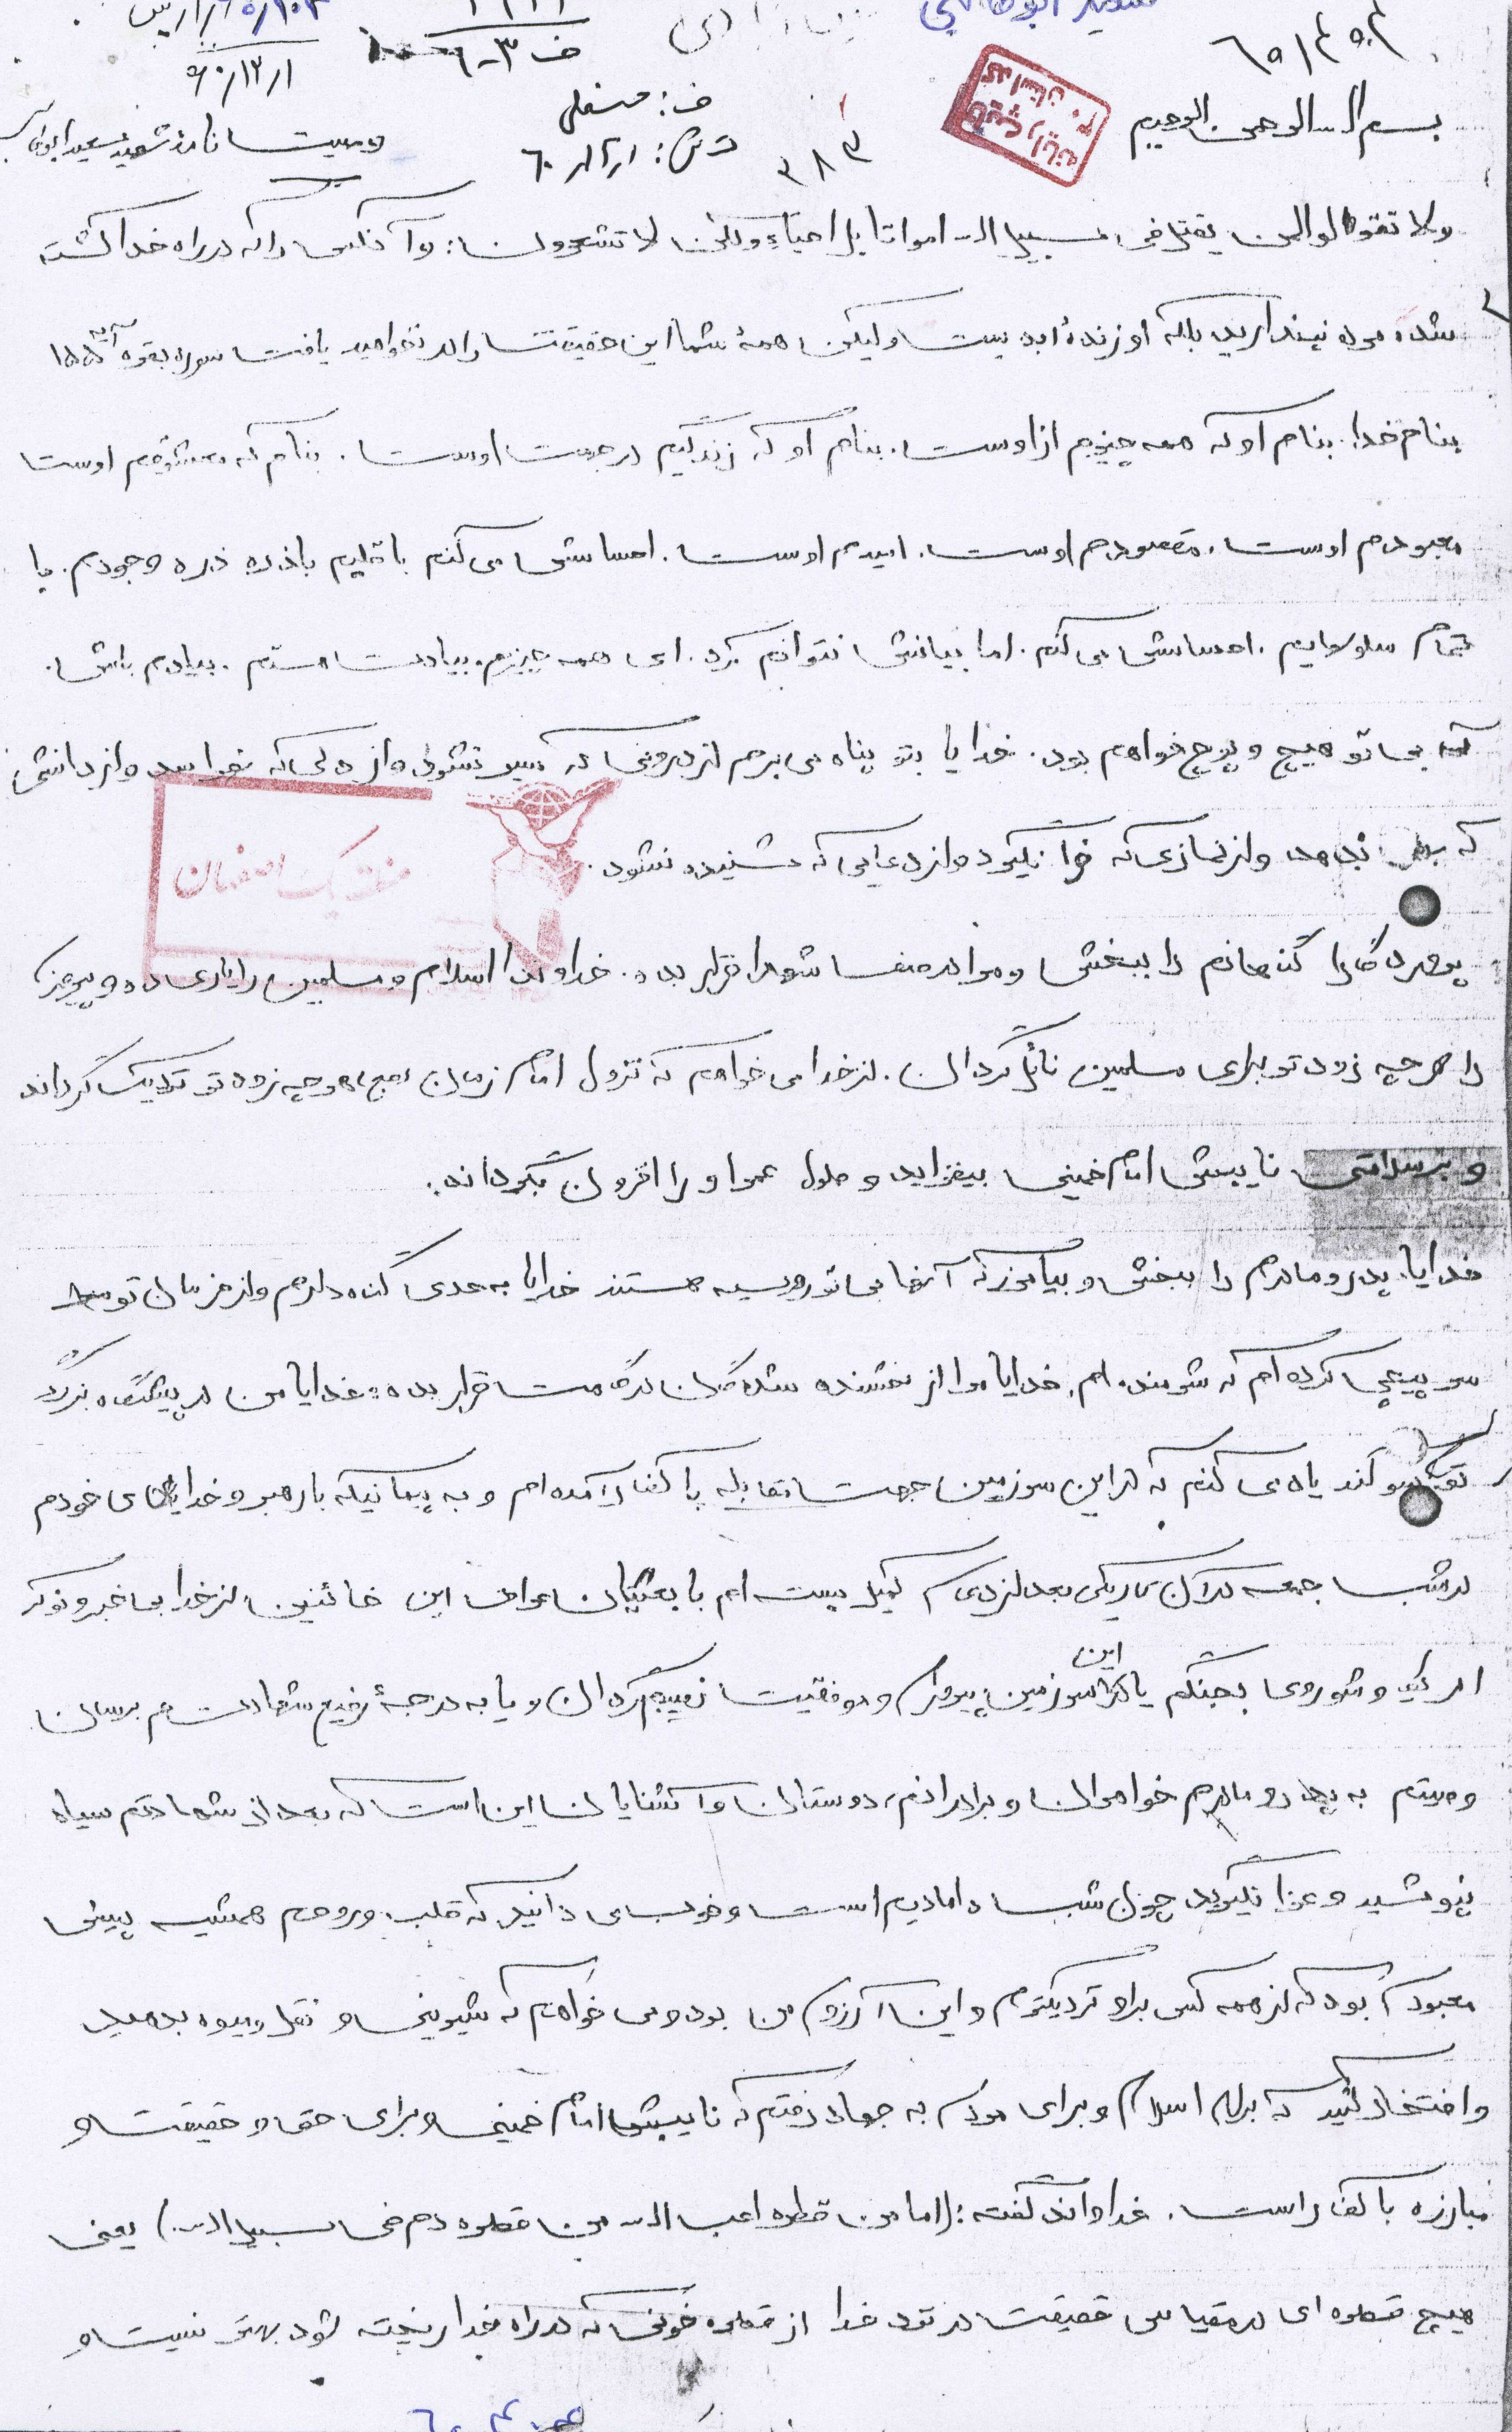 بسم الله الرحمن الرحیم
وصیت نامه شهید سعید ابوطالبی
ف: مسغلی
۳۸۳
ولا تقولوا لمن یقتل فی سبیل الله امواتا بل احیاء ولکن لا تشعرون: و آنکس را که در راه خدا کشته
شده مرده نپندارید بلکه او زندهٔ ابدیست ولیکن همهٔ شما این حقیقت را در نخواهید یافت سوره بقره آیه ۱۵۵
بنام خدا. بنام او که همه چیزم از اوست. بنام او که زندگیم در جهت اوست. بنام که معشوقم اوست
معبودم اوست. مقصودم اوست. امیدم اوست. احساسش می کنم با قلبم با ذره ذره وجودم. با
تمام سلولهایم. احساسش می کنم. اما بیانش نتوانم کرد. ای همه چیزم. بیادت هستم. بیادم باش.
که بی تو هیچ و پوچ خواهم بود. خدایا بتو پناه می برم از درونی که سیر نشود و از دلی که نهراسد و از دانشی
که نفع ندهد و از نمازی که فرا نگیرد و از دعایی که شنیده نشود.
منطقه یک اصفهان
پروردگارا گناهانم را ببخش و مرا در صف شهدا قرار بده. خداوندا اسلام و مسلمین را یاری ده و پیروزی
را هر چه زودتر برای مسلمین نائل گردان. از خدا می خواهم که نزول امام زمان (عج) هرچه زودتر نزدیک گرداند
و بر سلامتی نایبش امام خمینی بیفزاید و طول عمر او را افزون بگرداند.
خدایا پدر و مادرم را ببخش و بیامرز که آنها بی تو روسیه هستند خدایا به حدی گناه دارم و از فرمان تو
سرپیچی کرده ام که شرمنده ام. خدایا مرا از بخشنده شدگان درگاهت قرار بده. خدایا من در پیشگاه بزرگ
تو سوگند یاد می کنم که در این سرزمین جهت مقابله با کفار آمده ام و به پیمانیکه با رهبر و خدای خودم
در شب جمعه در آن تاریکی بعد از دعای کمیل بسته ام با بعثیان عراق این خائنین از خدا بی خبر و نوکر
امریکا و شوروی بجنگم یا در این سرزمین پیروزی و موفقیت نصیبم گردان و یا به درجهٔ رفیع شهادت برسان
وصیتم به پدر و مادرم خواهران و برادرانم، دوستان و آشنایان این است که بعد از شهادتم سیاه
نپوشید و عزا نگیرید چون شب دامادیم است و خوب می دانید که قلب و روحم همیشه پیش
معبودم بود که از همه کس برام نزدیکترم و این آرزوی من بود و می خواهم که شیرینی و نقل و میوه بدهید
و افتخار کنید که برای اسلام و برای مردم به جهاد رفتم که نایبش امام خمینی و برای حق و حقیقت و
مبارزه با کفار است. خداوند گفته: (اما من قطره احب الله من قطره دم فی سبیل الله) یعنی
هیچ قطره ای در مقیاس حقیقت در نزد خدا از قطره خونی که در راه خدا ریخته شود بهتر نیست و